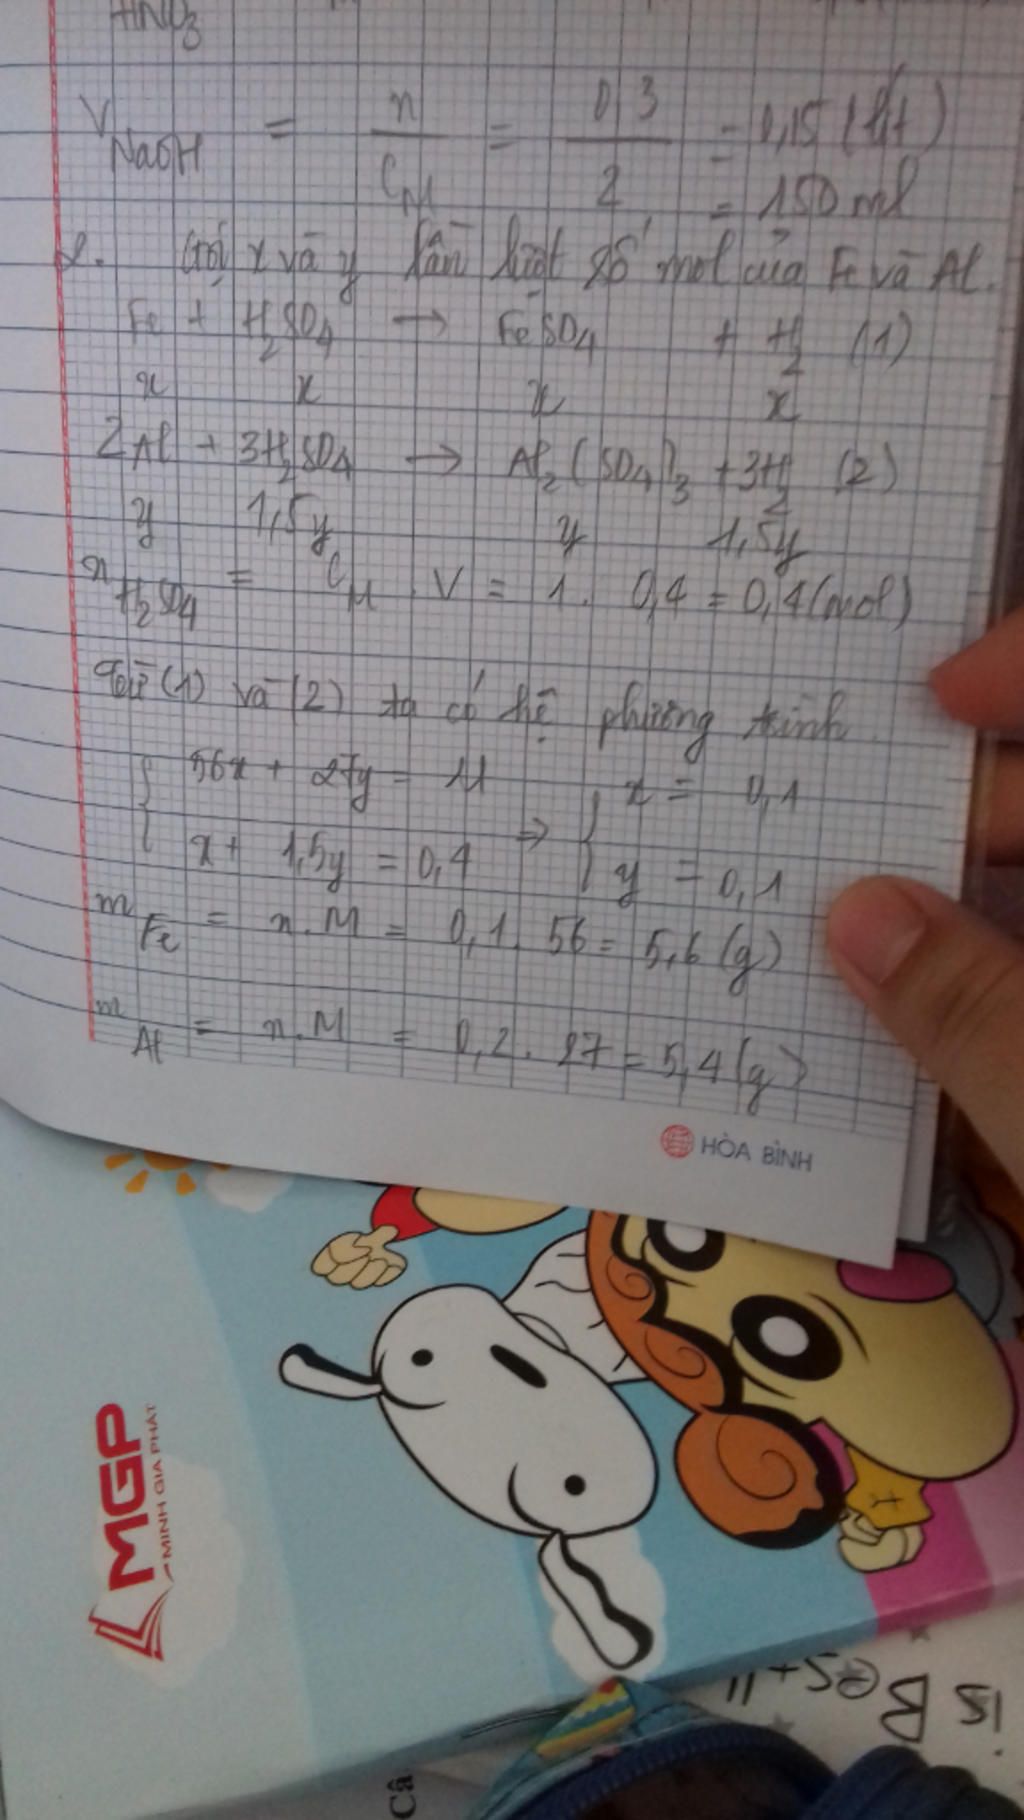 HNO3
V NaOH = n / CM = 0,3 / 2 = 0,15 (lít)
= 150 ml
2. Gọi x và y lần lượt số mol của Fe và Al.
Fe + H2SO4 → FeSO4 + H2 (1)
x x x x
2Al + 3H2SO4 → Al2(SO4)3 + 3H2 (2)
y 1,5y y 1,5y
n H2SO4 = CM . V = 1. 0,4 = 0,4 (mol)
Từ (1) và (2) ta có hệ phương trình
{ 56x + 27y = 11 ⇒ { x = 0,1
x + 1,5y = 0,4 y = 0,1
m Fe = n.M = 0,1. 56 = 5,6 (g)
m Al = n.M = 0,2. 27 = 5,4 (g)
HÒA BÌNH
MGP
MINH GIA PHÁT
is B
Câ